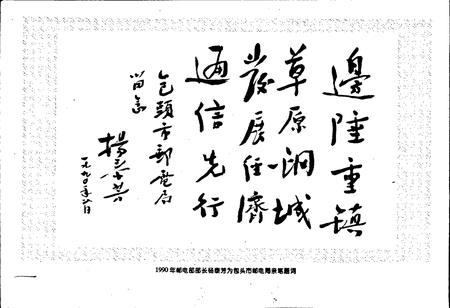 邊陲重鎮
草原鋼城
發展经濟
通信先行
包頭市郵電局
留念
楊泰芳
一九九〇年六月
1990年邮电部部长杨泰芳为包头市邮电局亲笔题词